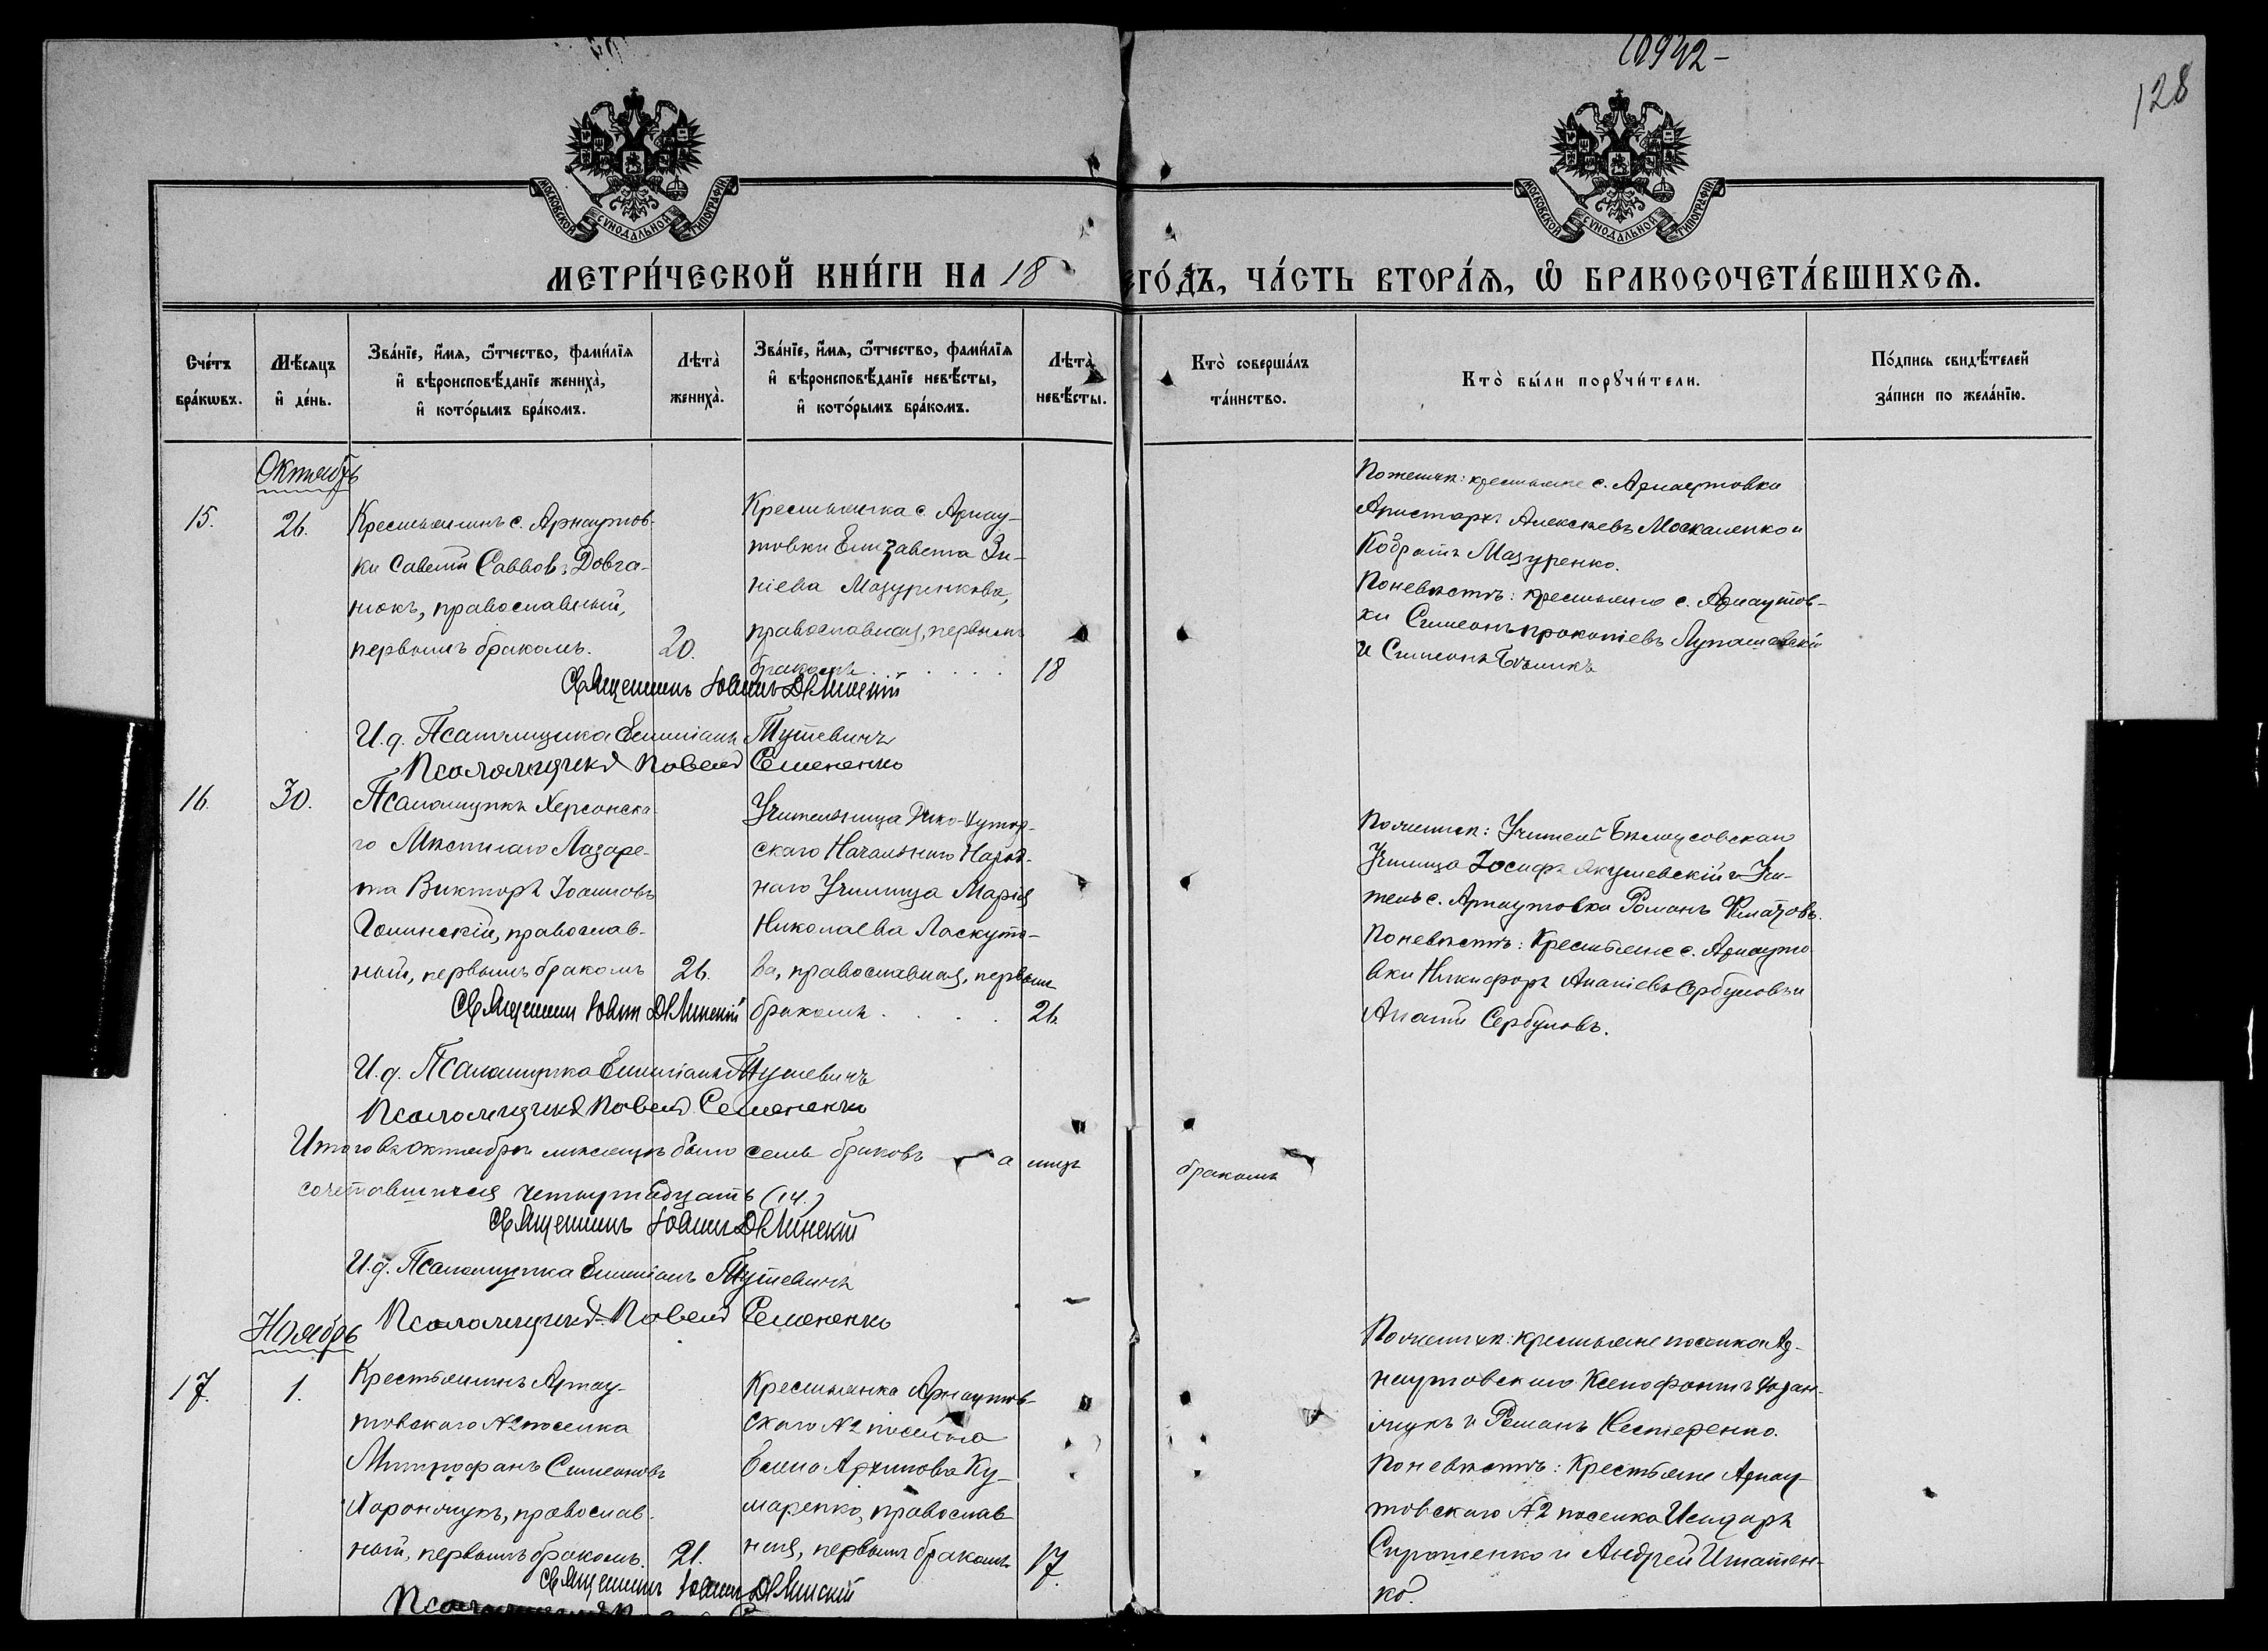 128
МОСКОВСКОЙ СУНОДАЛЬНОЙ ТИПОГРАФІИ
МОСКОВСКОЙ СУНОДАЛЬНОЙ ТИПОГРАФІИ
МЕТРИ́ЧЕСКОЙ КНИ́ГИ НА 18
ГО́ДЪ, ЧА́СТЬ ВТОРА́Ѧ, Ѡ҆ БРАКОСОЧЕТА́ВШИХСѦ.
Сче́тъ бра́кѡвъ.
Мѣ́сѧцъ и҆ де́нь.
Зва́нїе, и҆́мѧ, ѻ҆́тчество, фами́лїѧ и҆ вѣроисповѣ́данїе жениха̀, и҆ кото́рымъ бра́комъ.
Лѣта̀ жениха̀.
Зва́нїе, и҆́мѧ, ѻ҆́тчество, фами́лїѧ и҆ вѣроисповѣ́данїе невѣ́сты, и҆ кото́рымъ бра́комъ.
Лѣта̀ невѣ́сты.
Кто̀ соверша́лъ та́инство.
Кто̀ бы́ли порꙋчи́тели.
По́дпись свидѣ́телей за́писи по жела́нїю.
Октябрь
15.
26.
Крестьянинъ с. Арнаутов-
ки Савелій Саввовъ Довга-
нюкъ, православный,
первымъ бракомъ.
20.
Крестьянка с. Арнау-
товки Елизавета Зи-
ніева Мазуренкова,
православная, первымъ
бракомъ
18
По женихѣ: крестьяне с. Арнаутовки
Аристархъ Алексѣевъ Москаленко и
Кодратъ Мазуренко.
По невѣстѣ: крестьяне с. Арнаутов-
ки Симеонъ Прокопіевъ Лупашевскій
и Симеонъ
Священникъ Іоаннъ
И. д. Псаломщика Емиліанъ
Псаломщикъ Павелъ Семененко
16.
30.
Псаломщикъ Херсонска-
го Мѣстнаго Лазаре-
та Викторъ Іоанновъ
Голинскій, православ-
ный, первымъ бракомъ
26.
Учительница
скаго Начальнаго Народ-
наго Училища Марія
Николаева Ласкуто-
ва, православная, первымъ
бракомъ
26.
По женихѣ: Учитель
Училища Іосифъ Якушевскій и Учи-
тель с. Арнаутовки Романъ
По невѣстѣ: Крестьяне с. Арнауто-
вки Никифоръ Ананіевъ Сербуловъ и
Ананій Сербуловъ.
Священникъ Іоаннъ
И. д. Псаломщика Емиліанъ
Псаломщикъ Павелъ Семененко
Итого въ октябрѣ мѣсяцѣ было семь браковъ а лицъ бракомъ
сочетавшихся четырнадцать (14.)
Священникъ Іоаннъ
И. д. Псаломщика Емиліанъ
Псаломщикъ Павелъ Семененко
Ноябрь
17.
1.
Крестьянинъ Арнау-
товскаго №2 поселка
Митрофанъ Симеоновъ
православ-
ный, первымъ бракомъ.
21.
Крестьянка Арнаутов-
скаго №2 поселка
Елена Архипова Ку-
шаренко, православ-
ная, первымъ бракомъ
17.
По женихѣ: крестьяне поселка Ар-
наутовскаго Ксенофонтъ
и Романъ Нестеренко.
По невѣстѣ: Крестьяне Арнау-
товскаго №2 поселка Исидоръ
Сиротенко и Андрей Игнатен-
ко.
Священникъ Іоаннъ